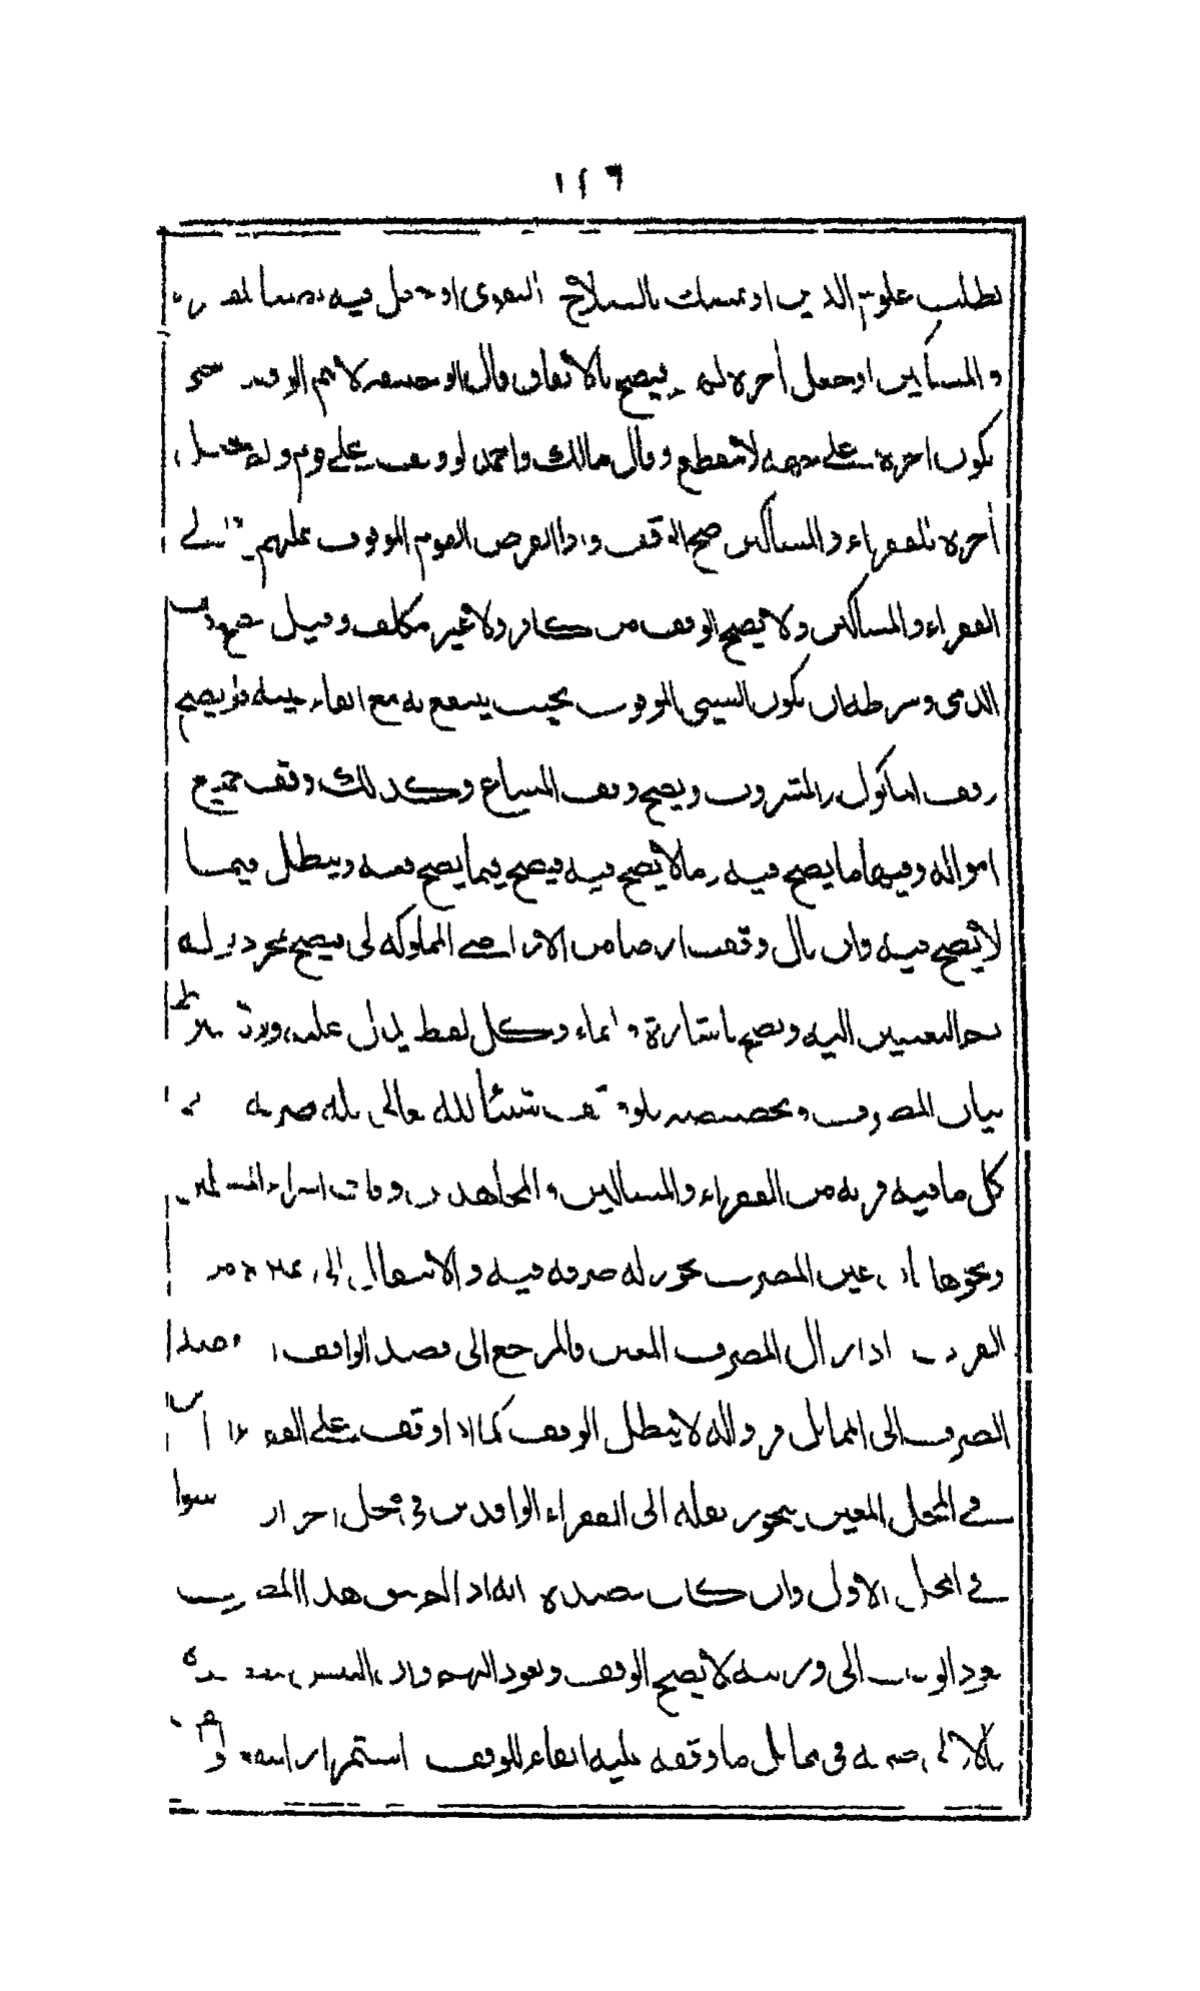 ١٤٦
بطلب علوم الدين او تمسك بالصلاح التقوى او جعل فيه نصيبا
والمساكين او جعل آخره لهم فيصح بالاتفاق وقال ابو حنيفه لا يتم الوقف حتى
يكون اخره على جهه لا تنقطع وقال مالك واحمد لو وقف على قوم ولم يجعل
آخره للفقراء والمساكين صح الوقف واذا انقرض القوم الموقوف عليهم
الفقراء والمساكين ولا يصح الوقف من كافر ولا غير مكلف وقيل يصح وقف
الذمي وشرطه ان يكون الشيء الموقوف بحيث ينتفع به مع ابقاء عينه فلا يصح
وقف المأكول والمشروب ويصح وقف المشاع وكذلك وقف جميع
امواله وفيها ما يصح فيه وما لا يصح فيه فيصح فيما يصح وقفه ويبطل فيما
لا يصح فيه وان قال وقفت ارضا من الاراضي المملوكه لي فيصح
التعيين اليه ويصح باشارة وايماء وكل لفظ يدل عليه
بيان المصرف وتخصيصه فلو وقف شيئا لله تعالى فله صرفه
كل ما فيه قربه من الفقراء والمساكين والمجاهدين وفك اسراء المسلمين
ونحوها عين المصرف يجوز له صرفه فيه والانتقال الى غيره من
القرب اذا زال المصرف المعين فالمرجع الى قصد الواقف
الصرف الى المماثل لا يبطل الوقف كما اذا وقف على
في المحل المعين يجوز نقله الى الفقراء الوافدين في محل اخر
في المحل الاول وان كان قصده انه اذا انقرض هذا المصرف
يعود الوقف الى ورثته لا يصح الوقف ويعود اليهم وان التبس قصده
في مماثل ما وقفه عليه ابقاء للوقف استمرار